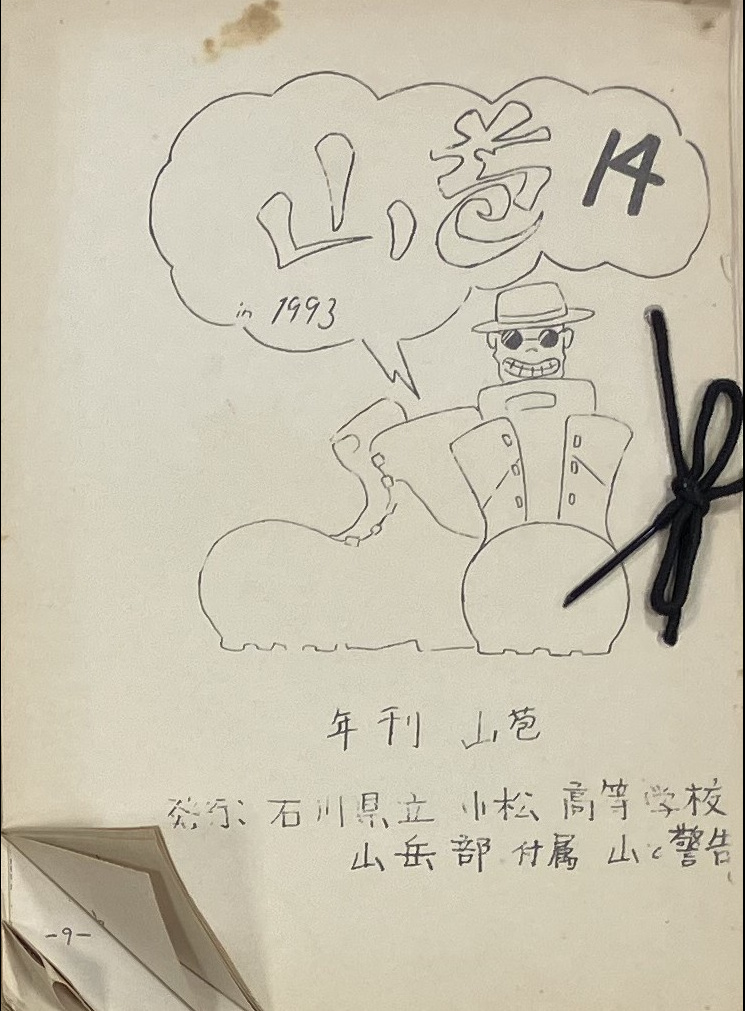 山苞 14
in 1993
年刊 山苞
発行: 石川県立 小松 高等学校
山岳部 付属 山と警告
-9-